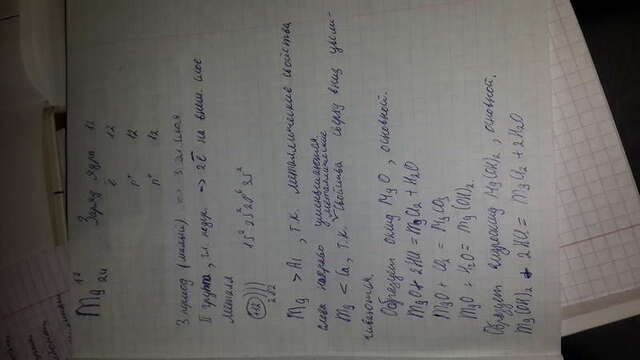 Mg 12 24 Заряд ядра 12
e 12
p⁺ 12
n⁰ 12
3 период (малый) => 3 эл слоя
II группа, гл. подгр. => 2ē на внеш. слое
металл
1s² 2s² 2p⁶ 3s²
+12 ))) 2 8 2
Mg > Al, т.к. металлические свойства
слева направо уменьшаются
Mg < Ca, т.к. металлические свойства сверху вниз увели-
чиваются.
Образует оксид MgO, основной.
MgO + 2HCl = MgCl₂ + H₂O
MgO + CO₂ = MgCO₃
MgO + H₂O = Mg(OH)₂.
Образует гидроксид Mg(OH)₂, основной.
Mg(OH)₂ + 2HCl = MgCl₂ + 2H₂O